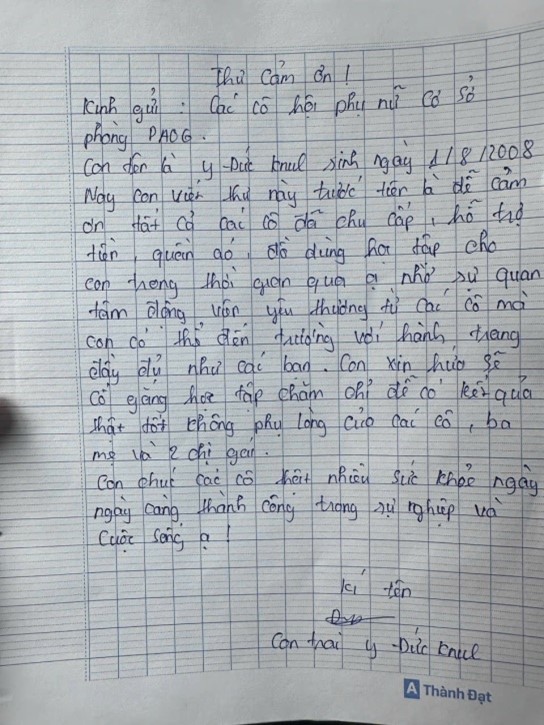 Thư Cảm ơn !
Kính gửi : Các cô hội phụ nữ cơ sở
phòng PA06.
Con tên là y-Đức knul sinh ngày 1/8/2008
Nay con viết thư này trước tiên là để cảm
ơn tất cả các cô đã chu cấp, hỗ trợ
tiền, quần áo, đồ dùng học tập cho
con trong thời gian qua ạ nhờ sự quan
tâm động viên yêu thương từ các cô mà
con có thể đến trường với hành trang
đầy đủ như các bạn. Con xin hứa sẽ
Cố gắng học tập chăm chỉ để có kết quả
thật tốt không phụ lòng của các cô, ba
mẹ và 2 chị gái.
Con chúc các cô thật nhiều sức khỏe ngày
ngày càng thành công trong sự nghiệp và
Cuộc sống ạ !
kí tên
Con trai y-Đức knul
A Thành Đạt